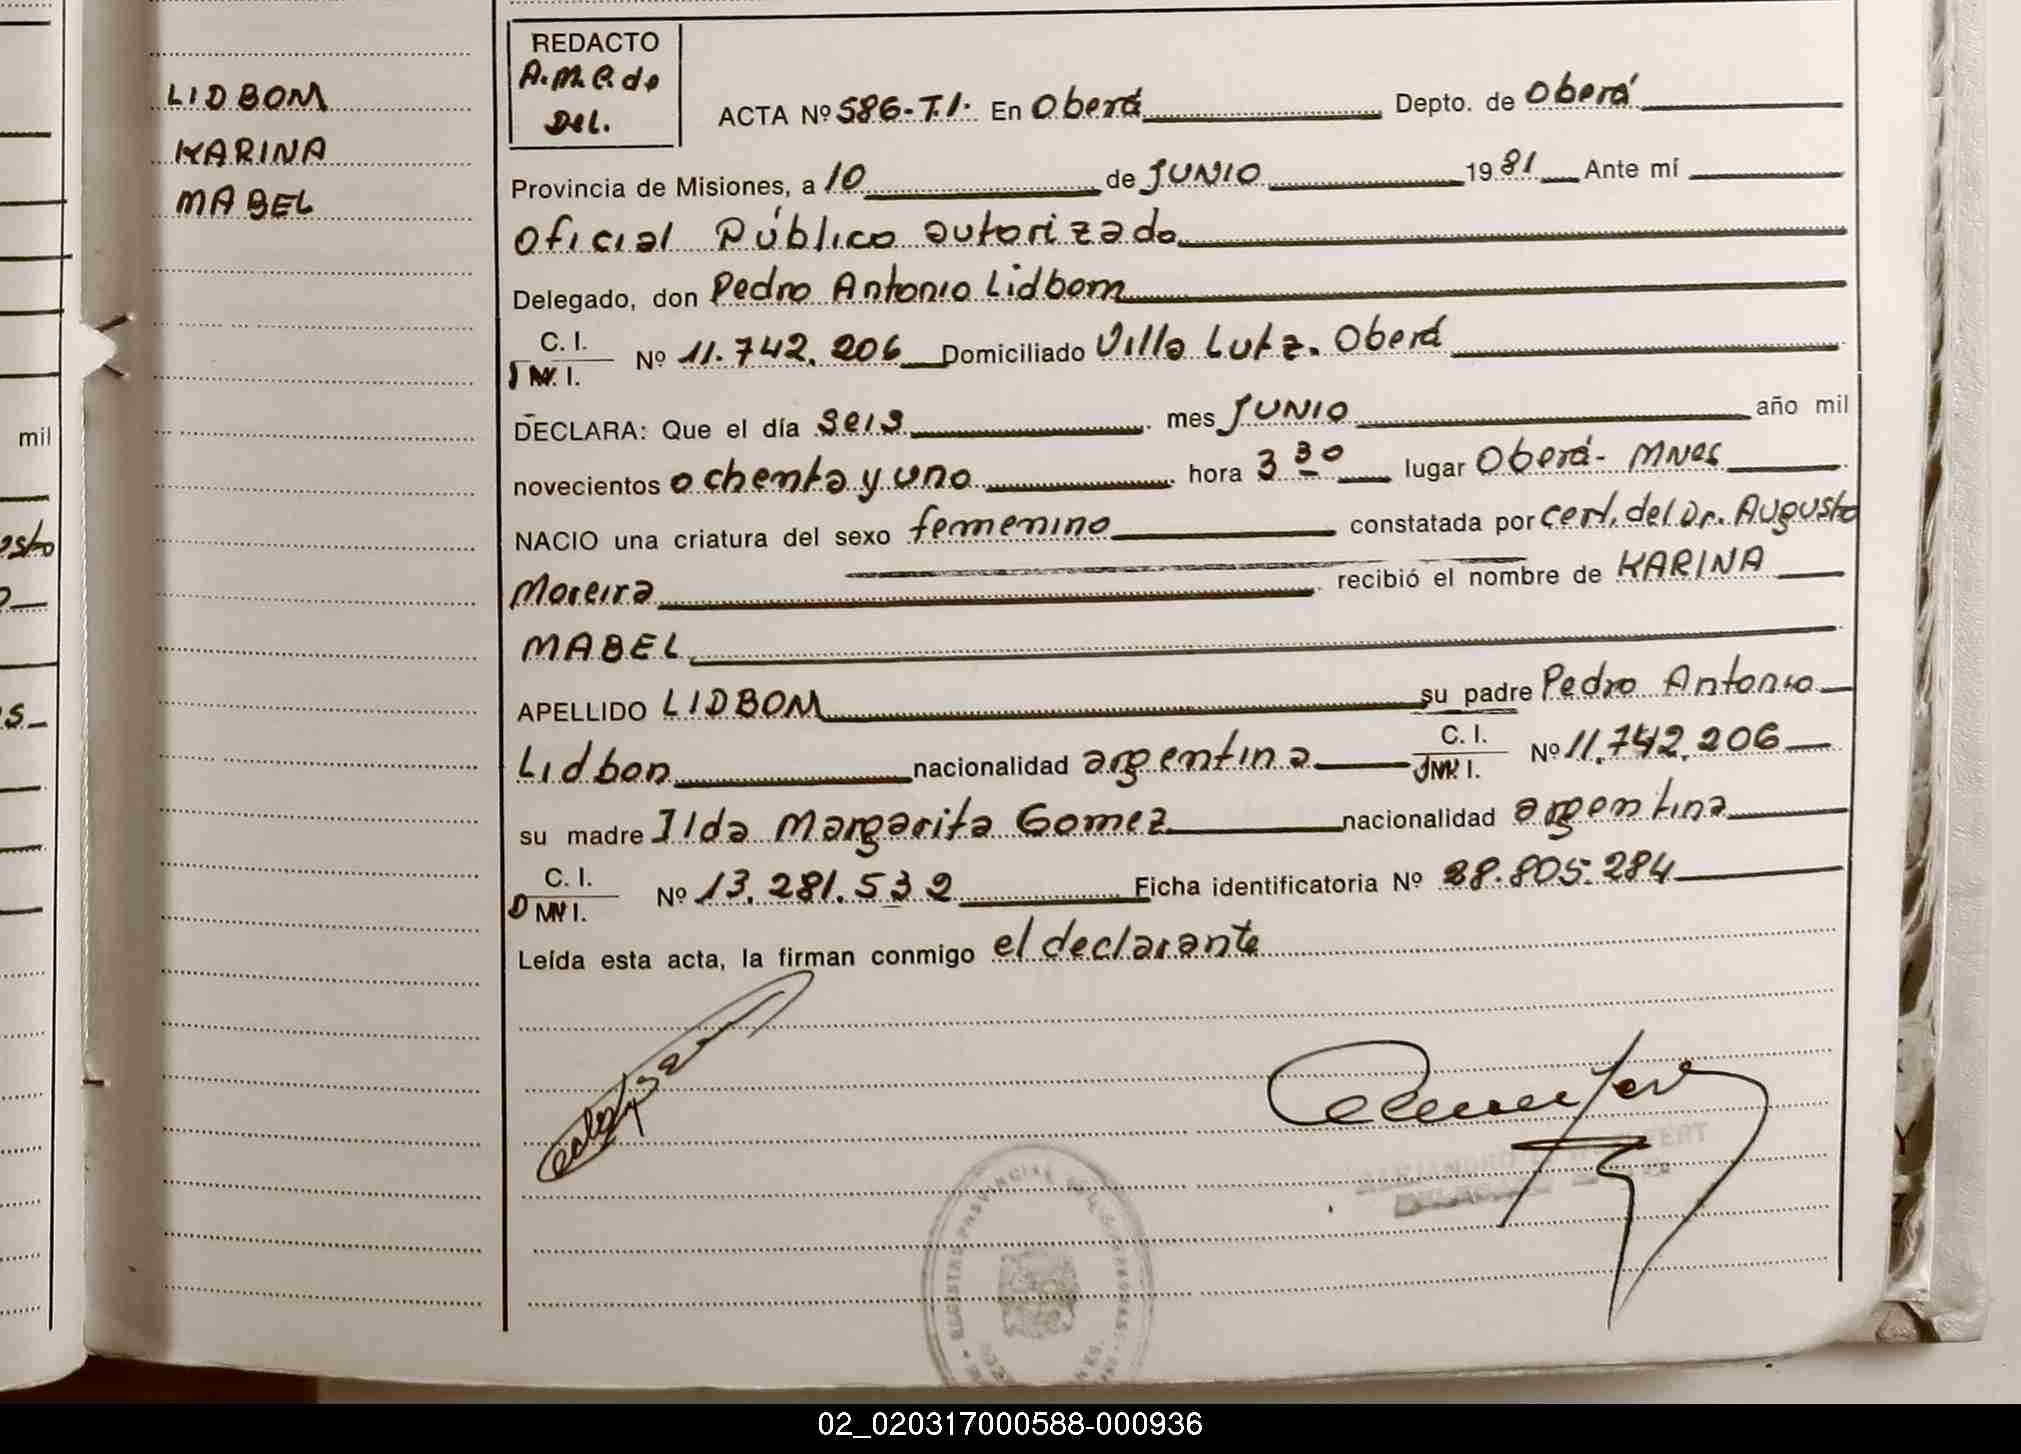 LIDBOM
KARINA
MABEL
REDACTO
A.M.C. de
Del.
ACTA Nº 586-T.I. En Oberá Depto. de Oberá
Provincia de Misiones, a 10 de JUNIO 1981 Ante mí
Oficial Público autorizado
Delegado, don Pedro Antonio Lidbom
C. I.
M. I. Nº 11.742.206 Domiciliado Villa Lutz. Oberá
DECLARA: Que el día seis mes JUNIO año mil
novecientos ochenta y uno hora 3 30 lugar Oberá - Mnes
NACIO una criatura del sexo femenino constatada por cert. del Dr. Augusto
Moreira recibió el nombre de KARINA
MABEL
APELLIDO LIDBOM su padre Pedro Antonio
Lidbon nacionalidad argentina C. I. M. I. Nº 11.742.206
su madre Ilda Margarita Gomez nacionalidad argentina
C. I.
M. I. Nº 13.281.532 Ficha identificatoria Nº 28.805.284
Leída esta acta, la firman conmigo el declarante
REGISTRO PROVINCIAL DE LAS PERSONAS
mil
s-
02_020317000588-000936